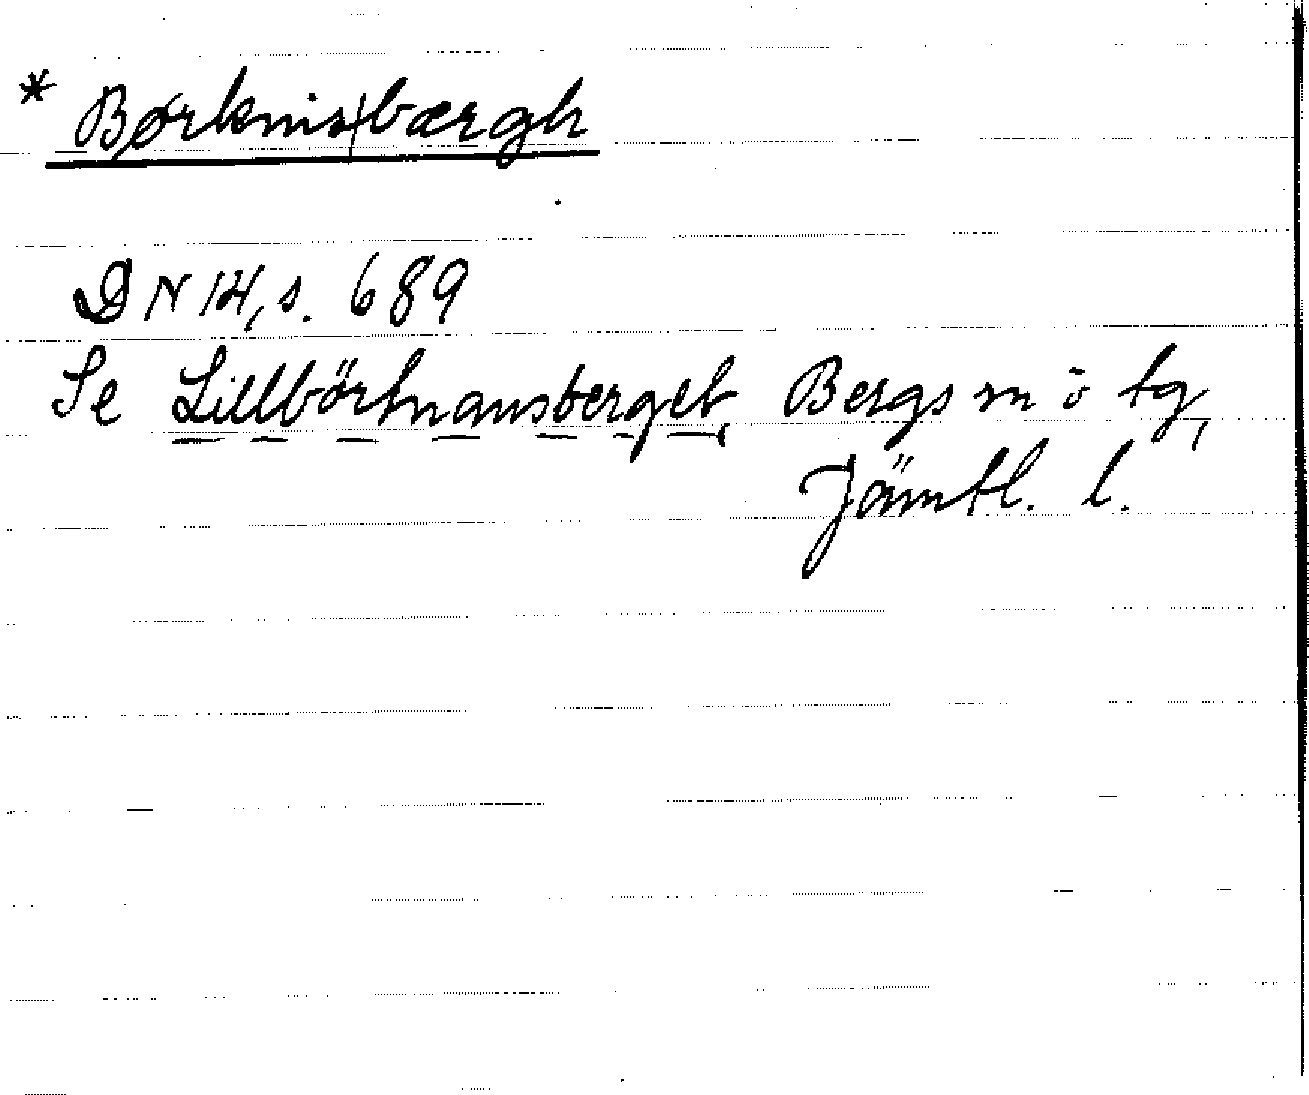 * Børknis|bærgh
DN 14, s. 689
Se Lillbörknansberget, Bergs sn ö tg,
Jämtl. l.